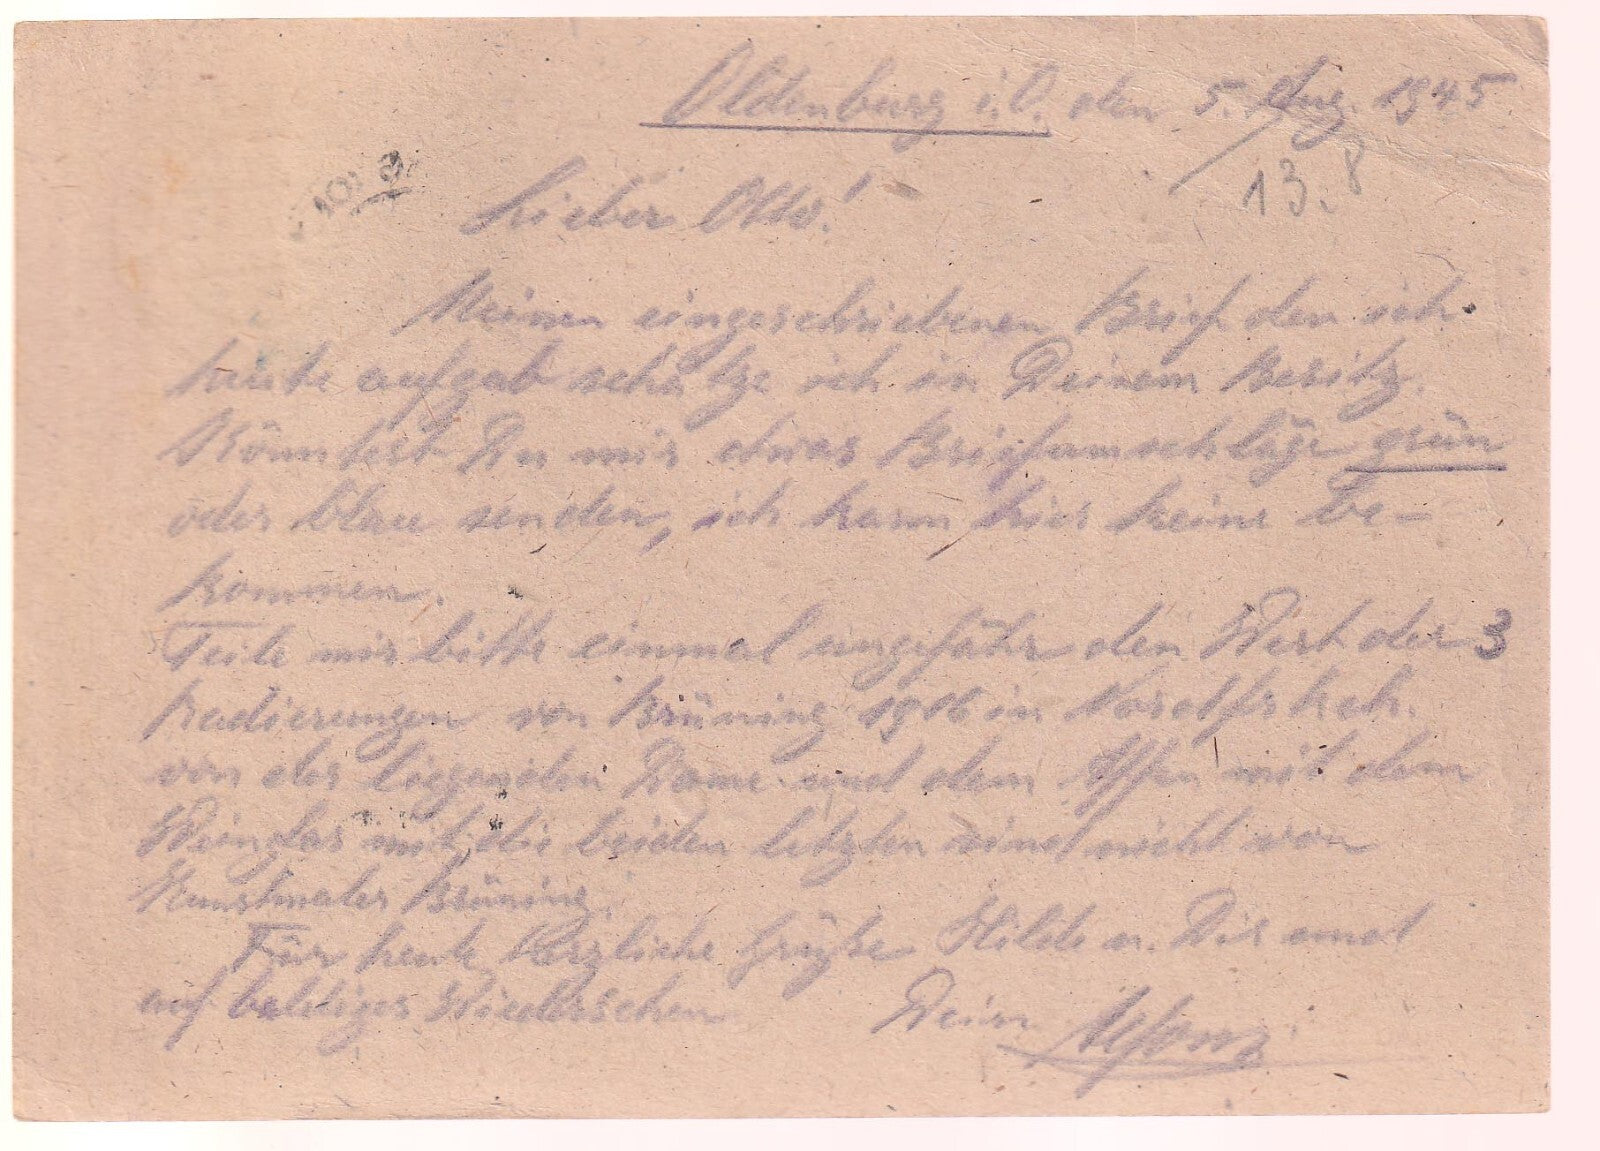 Oldenburg i.O. den 5. Aug. 1945
13.8
Lieber Otto!
Meinen eingeschriebenen Brief den ich
heute aufgab schätze ich in Deinem Besitz.
Könntest Du mir etwas Briefumschläge grün
oder blau senden, ich kann hier keine be-
kommen.
Teile mir bitte einmal ungefähr den Wert der 3
Radierungen von Brüning 1916 in
von der liegenden Dame und dem Affen mit dem
Weinglas mit die beiden letzten sind nicht von
Kunstmaler Brüning.
Für heute herzliche Grüße Hilde u. Dir und
auf baldiges Wiedersehen Dein Alfons